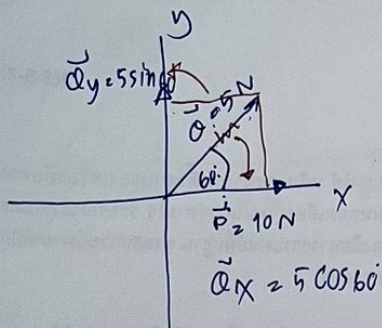 y
Q⃗y = 5 sin 60°
Q⃗ = 5 N
60°
x
P⃗ = 10 N
Q⃗x = 5 cos 60°